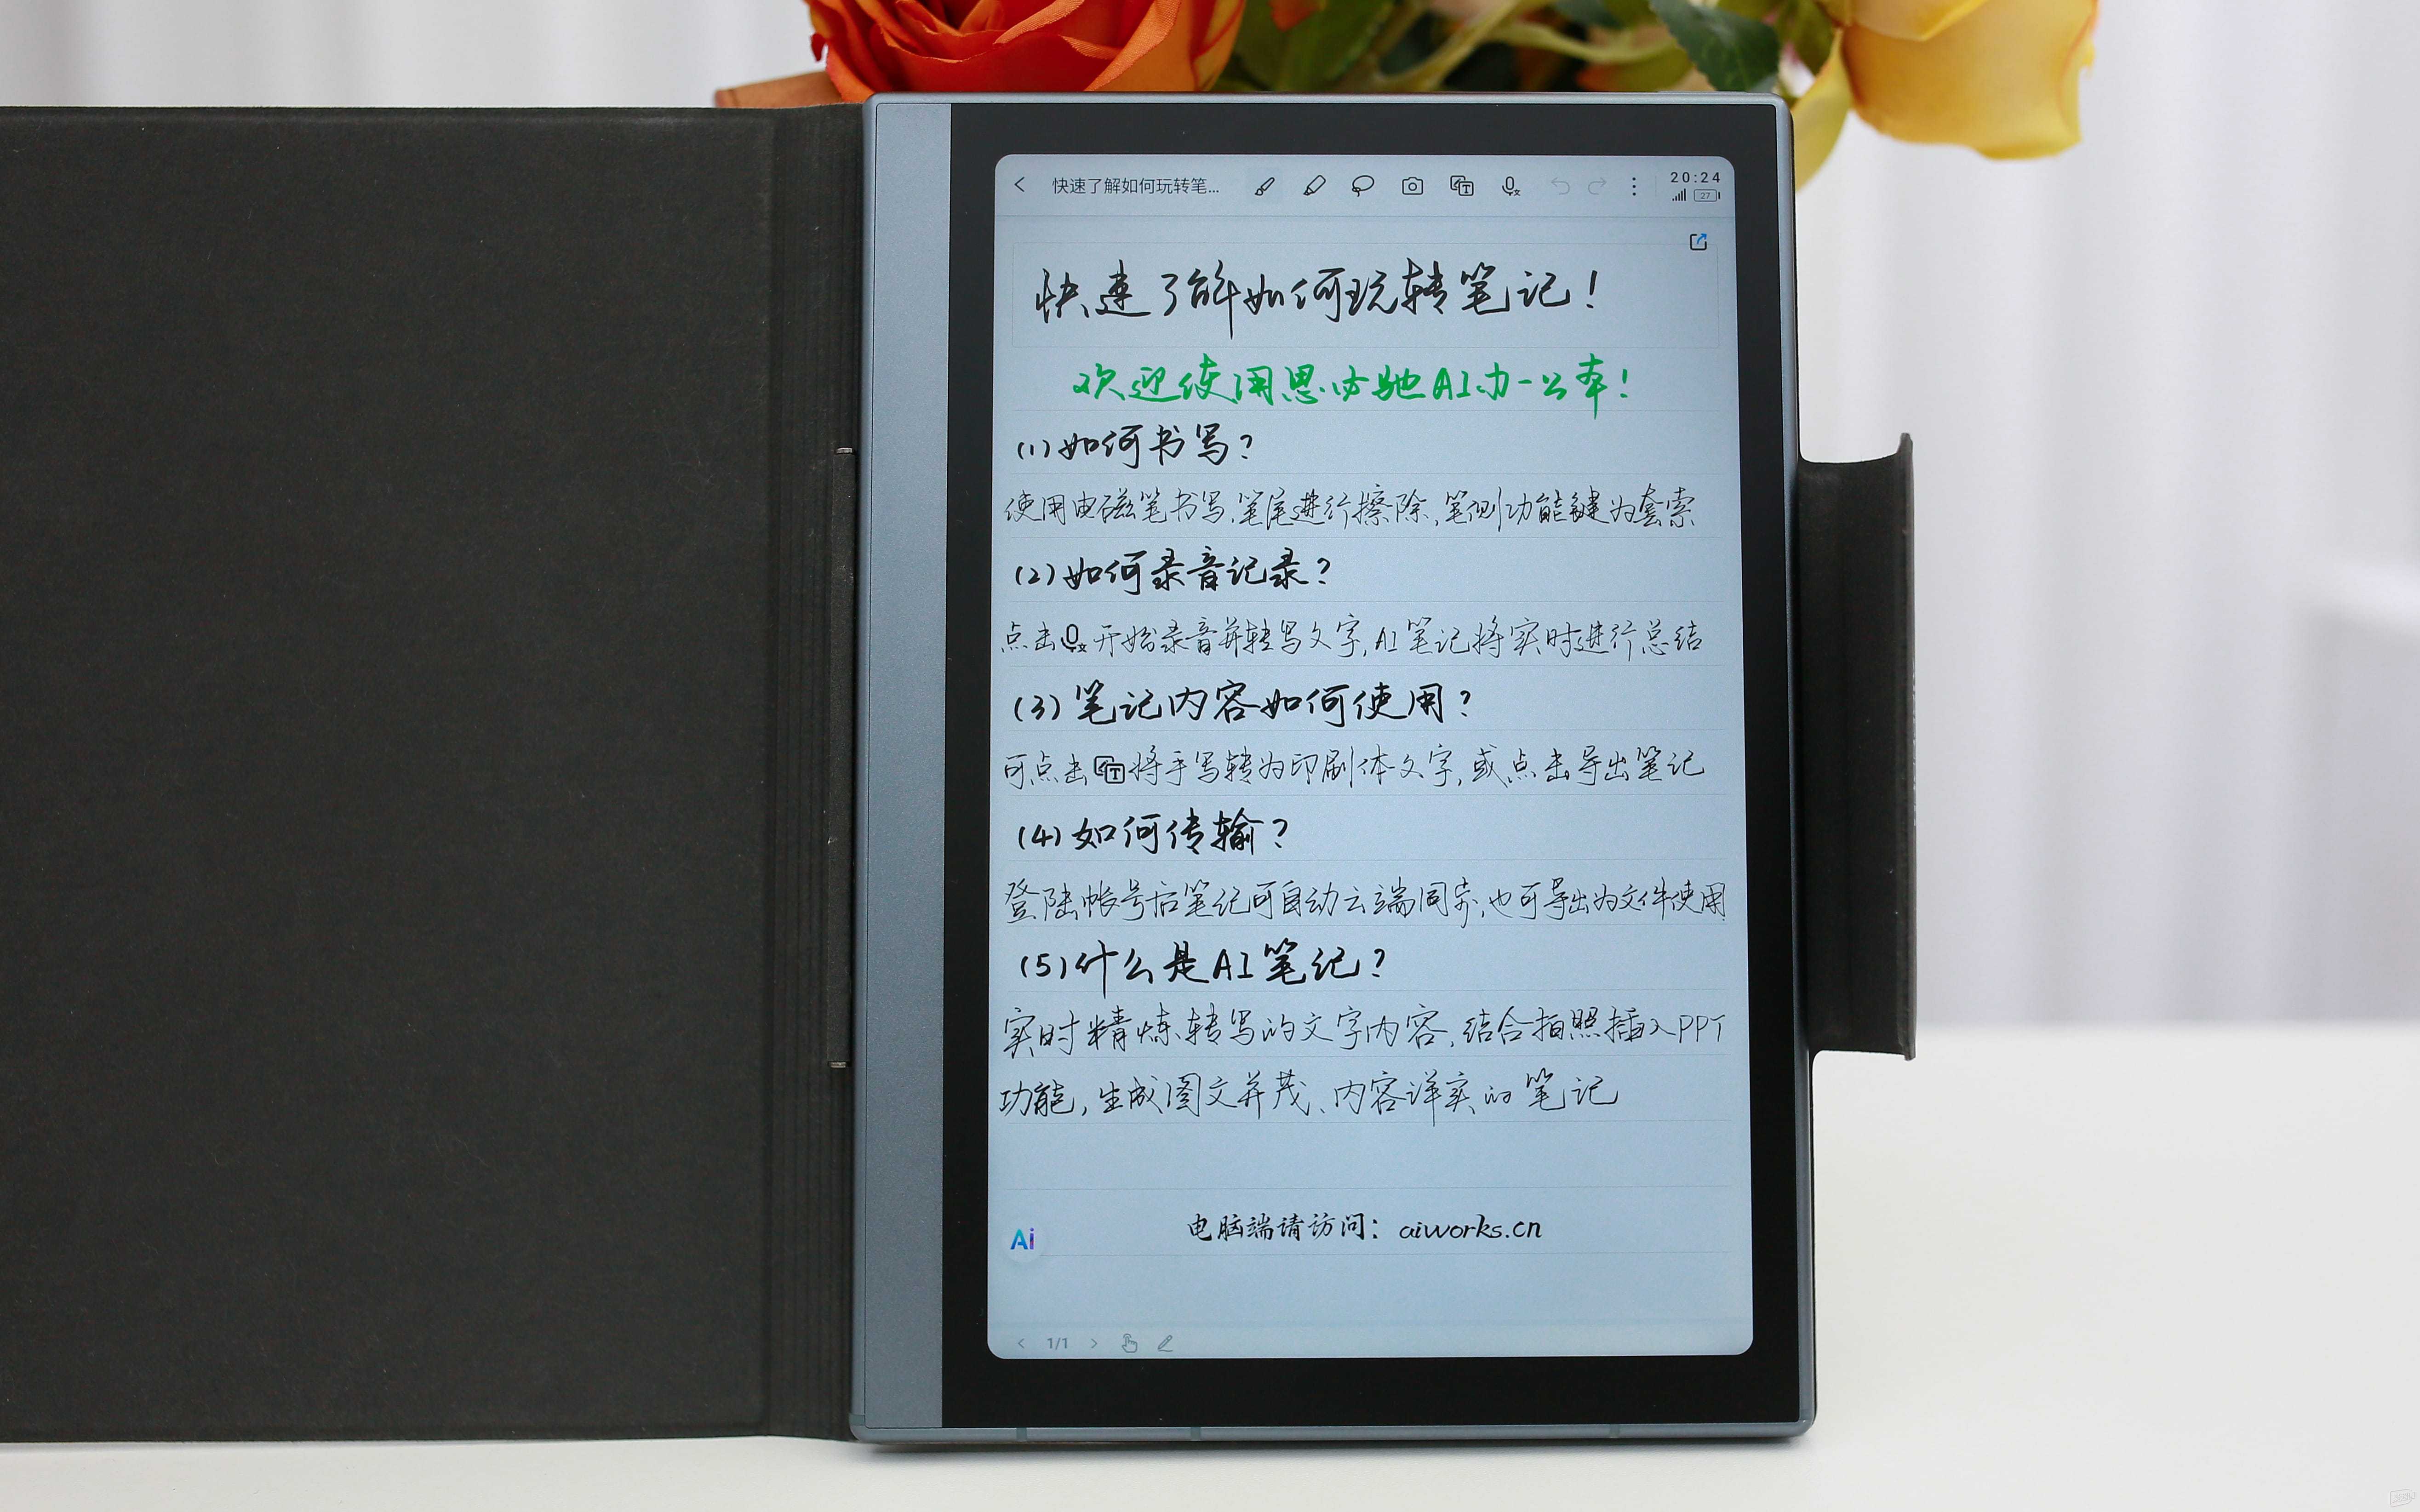 快速了解如何玩转笔...
20:24
27
快速了解如何玩转笔记!
欢迎使用思必驰AI办公本!
(1)如何书写?
使用电磁笔书写,笔尾进行擦除,笔侧功能键为套索
(2)如何录音记录?
点击开始录音并转写文字,AI笔记将实时进行总结
(3)笔记内容如何使用?
可点击将手写转为印刷体文字,或点击导出笔记
(4)如何传输?
登陆帐号后笔记可自动云端同步,也可导出为文件使用
(5)什么是AI笔记?
实时精炼转写的文字内容,结合拍照插入PPT
功能,生成图文并茂、内容详实的笔记
电脑端请访问:aiworks.cn
Ai
1/1